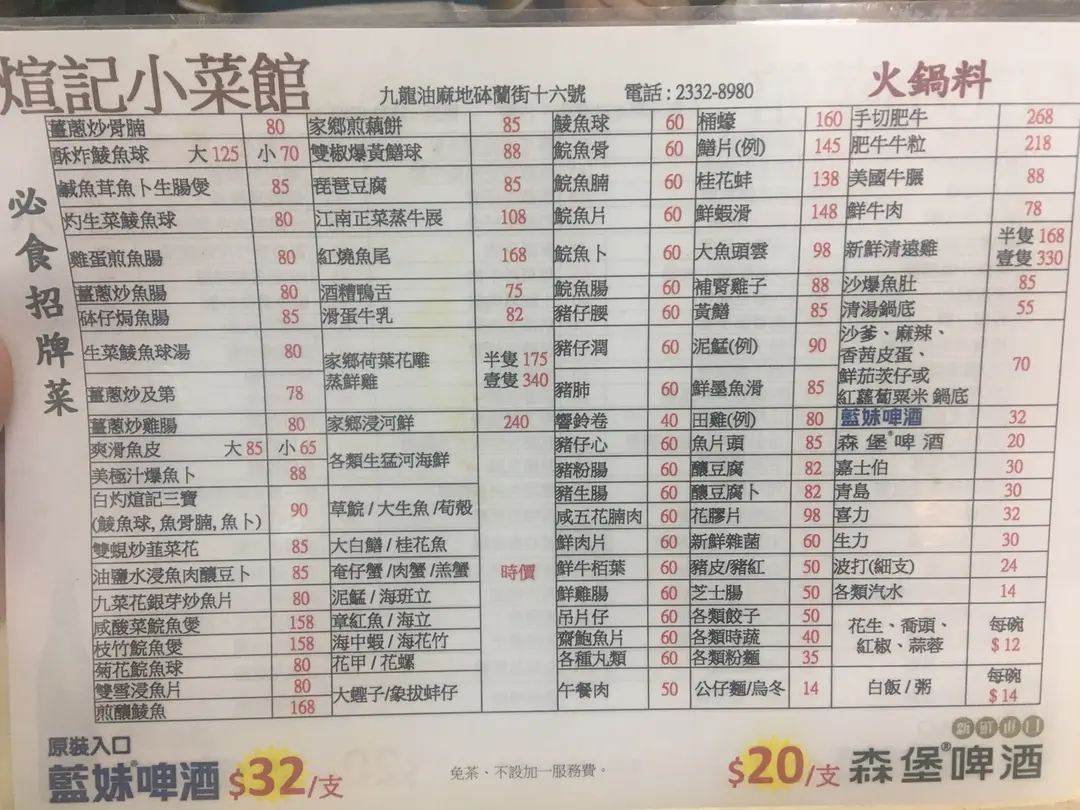 煊記小菜館
九龍油麻地砵蘭街十六號 電話:2332-8980
火鍋料
必食招牌菜
薑蔥炒骨腩 80
酥炸鯪魚球 大125 小70
鹹魚茸魚卜生腸煲 85
灼生菜鯪魚球 80
雞蛋煎魚腸 80
薑蔥炒魚腸 80
砵仔焗魚腸 85
生菜鯪魚球湯 80
薑蔥炒及第 78
薑蔥炒雞腸 80
爽滑魚皮 大85 小65
美極汁爆魚卜 88
白灼煊記三寶
(鯪魚球,魚骨腩,魚卜) 90
雙蜆炒韮菜花 85
油鹽水浸魚肉釀豆卜 85
九菜花銀芽炒魚片 80
咸酸菜鯇魚煲 158
枝竹鯇魚煲 158
菊花鯇魚球 80
雙雪浸魚片 80
煎釀鯪魚 168
家鄉煎藕餅 85
雙椒爆黃鱔球 88
琵琶豆腐 85
江南正菜蒸牛展 108
紅燒魚尾 168
酒糟鴨舌 75
滑蛋牛乳 82
家鄉荷葉花雕
蒸鮮雞
半隻 175
壹隻 340
家鄉浸河鮮 240
各類生猛河海鮮
草鯇/大生魚/荀殼
大白鱔/桂花魚
奄仔蟹/肉蟹/羔蟹
泥鯭/海班立
章紅魚/海立
海中蝦/海花竹
花甲/花螺
大蟶子/象拔蚌仔
時價
鯪魚球 60
鯇魚骨 60
鯇魚腩 60
鯇魚片 60
鯇魚卜 60
鯇魚腸 60
豬仔腰 60
豬仔潤 60
豬肺 60
響鈴卷 40
豬仔心 60
豬粉腸 60
豬生腸 60
咸五花腩肉 60
鮮肉片 60
鮮牛栢葉 60
鮮雞腸 60
吊片仔 60
齋鮑魚片 60
各種丸類 60
午餐肉 50
桶蠔 160
鱔片(例) 145
桂花蚌 138
鮮蝦滑 148
大魚頭雲 98
補腎雞子 88
黃鱔 85
泥鯭(例) 90
鮮墨魚滑 85
田雞(例) 80
魚片頭 85
釀豆腐 82
釀豆腐卜 82
花膠片 98
新鮮雜菌 60
豬皮/豬紅 50
芝士腸 50
各類餃子 50
各類時蔬 40
各類粉麵 35
公仔麵/烏冬 14
手切肥牛 268
肥牛牛粒 218
美國牛䐁 88
鮮牛肉 78
新鮮清遠雞
半隻 168
壹隻 330
沙爆魚肚 85
清湯鍋底 55
沙爹、麻辣、
香茜皮蛋、
鮮茄茨仔或
紅蘿蔔粟米 鍋底
70
藍妹啤酒 32
森堡®啤酒 20
嘉士伯 30
青島 30
喜力 32
生力 30
波打(細支) 24
各類汽水 14
花生、喬頭、
紅椒、蒜蓉
每碗
$12
白飯/粥
每碗
$14
原裝入口
藍妹®啤酒 $32/支
免茶、不設加一服務費。
$20/支 森堡®啤酒